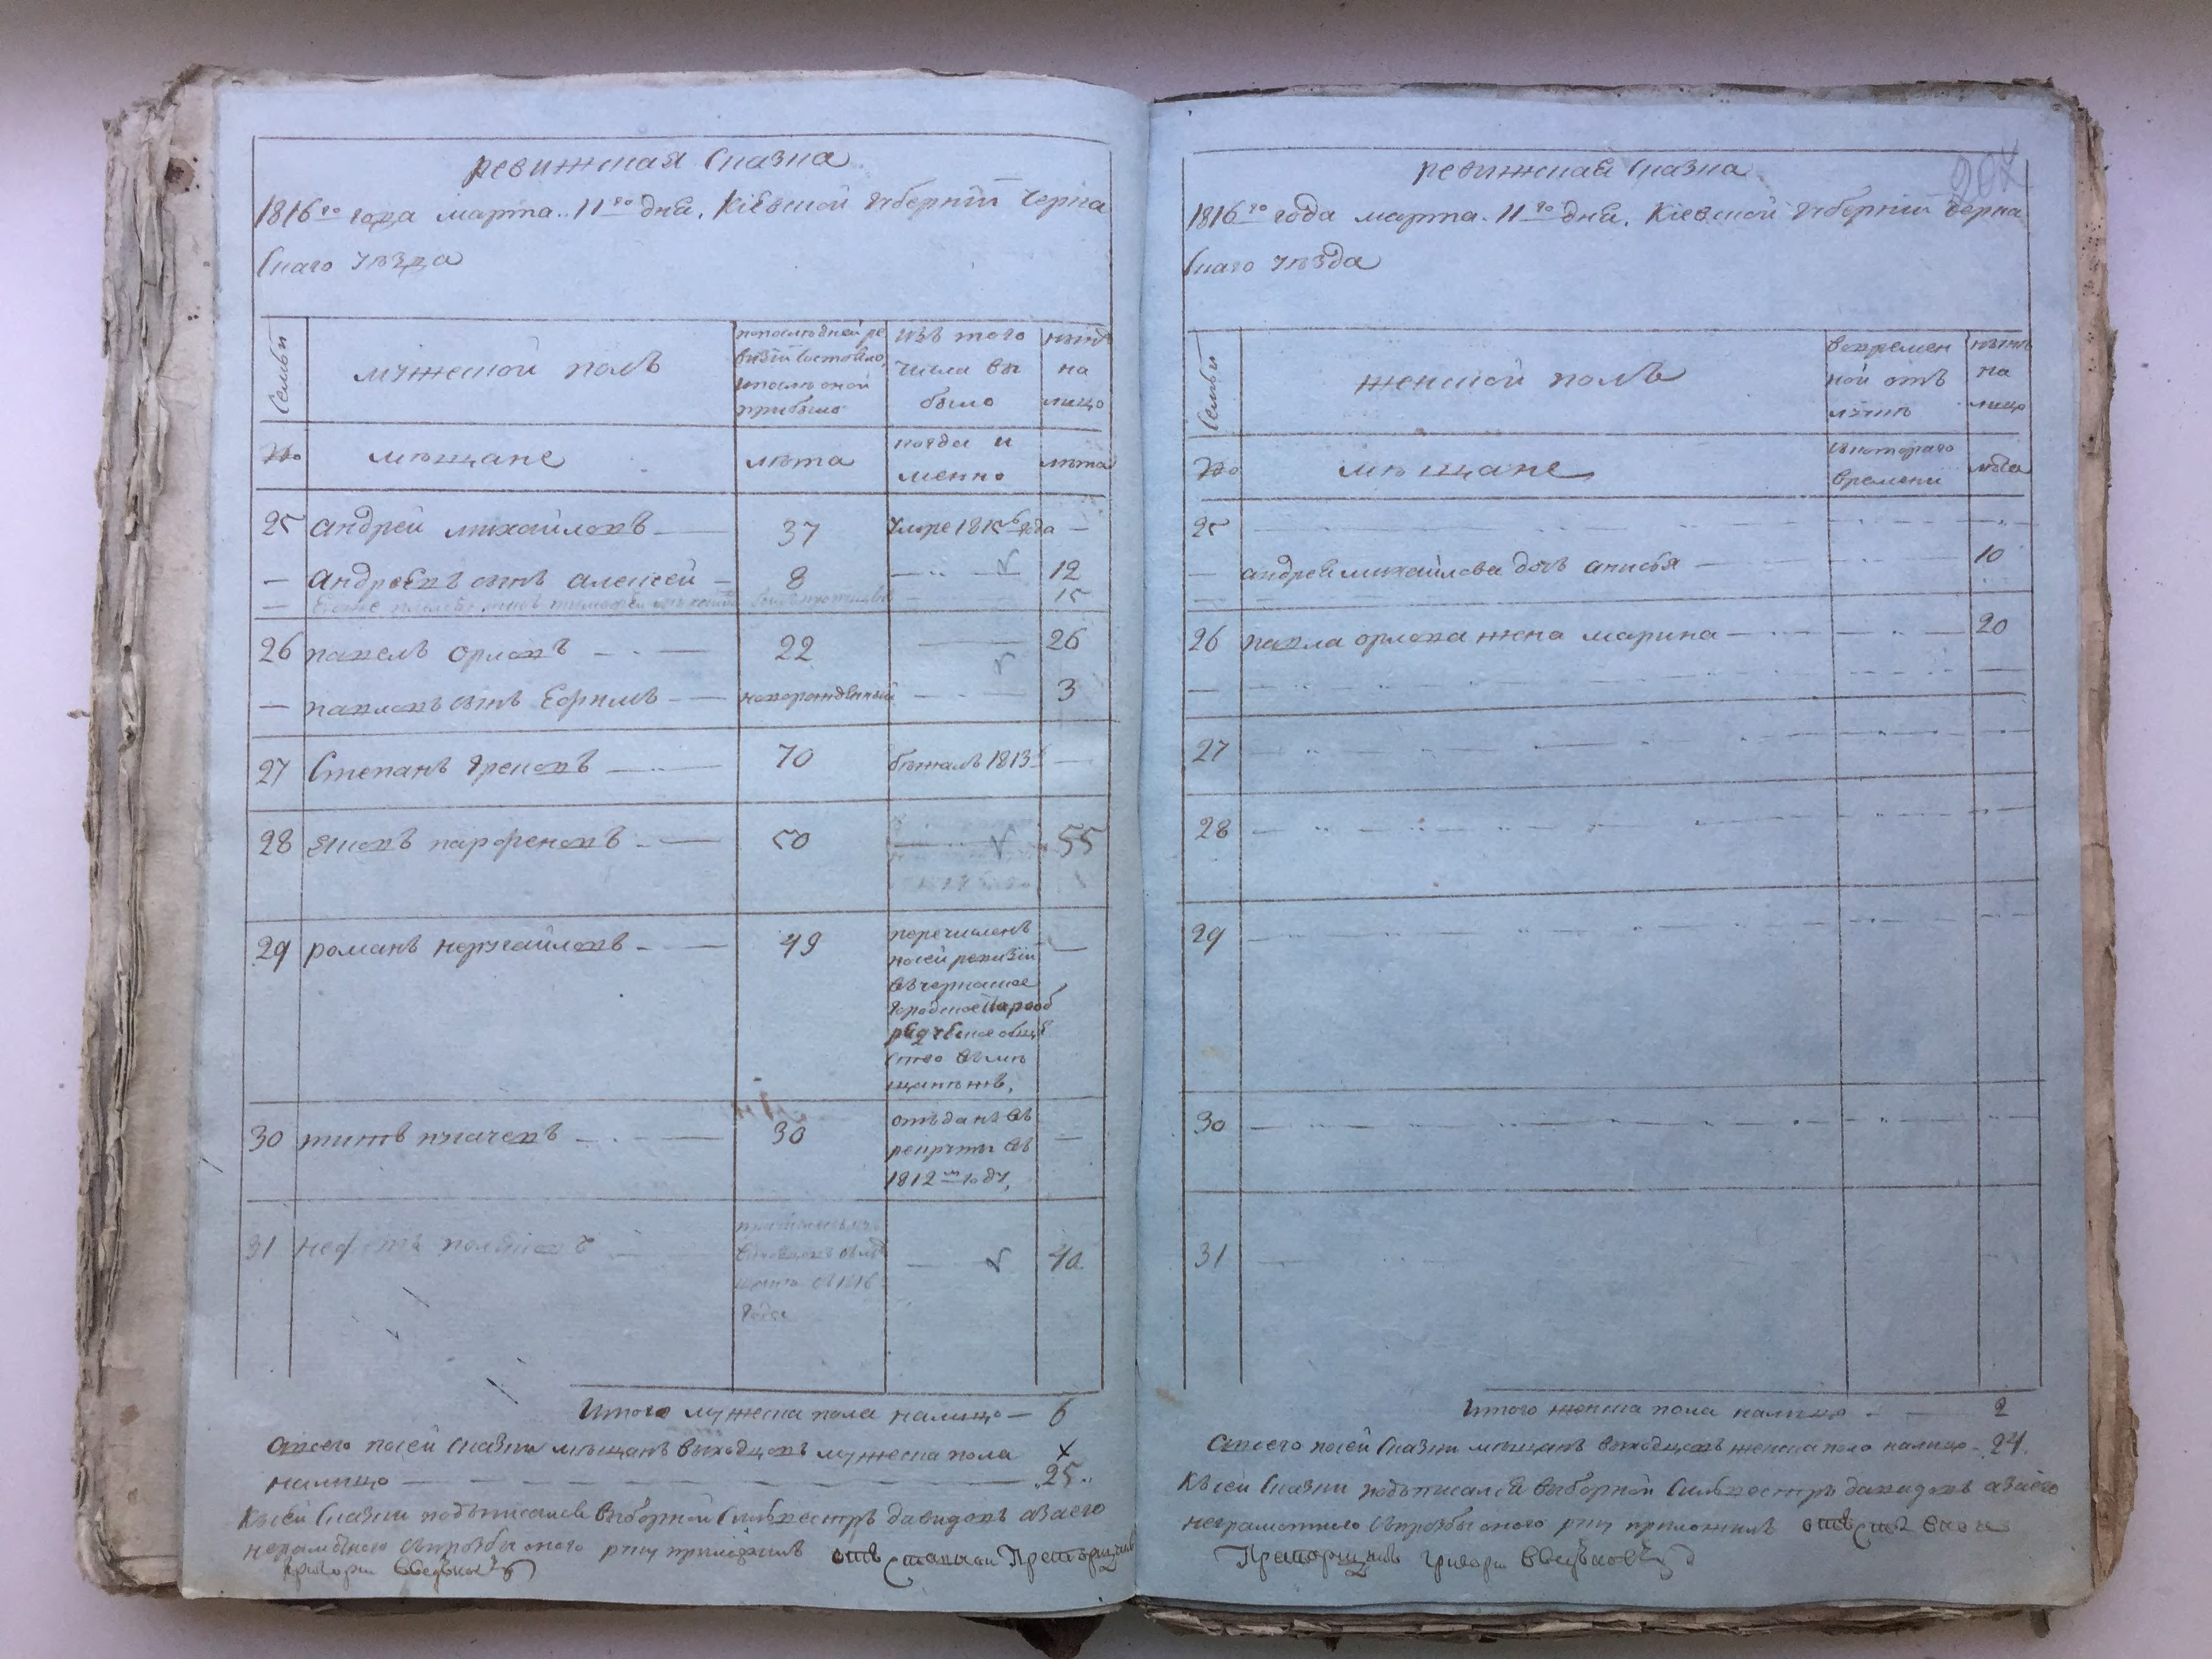 ревижская Сказка
1816го года марта 11го дня, Кіевской Губерніи Черка
Скаго уѣзда
Семьи
мужеской полъ
попослѣдней ре
визіи состояло,
ипослѣ оной
прибыло
изъ того
числа вы
было
нынѣ
на
лицо
№
мѣщане
лѣта
когда и
менно
лѣта
25 андрей михайловъ 37 Умре 1815 года
андреевъ сынъ алексей 8 12
15
26 павелъ орловъ 22 26
павловъ сынъ Ефимъ новорожденный 3
27 Степанъ 70 бѣжалъ 1813
28 Яковъ парфеновъ 50 55
29 романъ 49 перечисленъ
посей ревизіи
въ черкаское
городское
общѣ
ство въ мѣ
щанѣ жѣ,
30 титъ пугачевъ 30 отъданъ въ
рекруты въ
1812м году,
31 40
года
Итого мужеска пола налицо — 6
Авсего посей Сказки мѣщанъ выходцовъ мужеска пола
налицо 25
Ксей Сказки подъписался выборной Сильвестръ давидовъ азаего
неграмотного Спрозбы оного руку приложилъ отъставной Прапорщикъ
Григори
ревижская Сказка
207
1816го года марта 11го дня, Кіевской Губерніи Черка
Скаго уѣзда
Семьи
женской полъ
вовремен
ной отъ
лучкѣ
нынѣ
на
лицо
№
мѣщане
Скотораго
времени
лѣта
25
андрея михайлова дочь анисья 10
26 павла орлова жена марина 20
27
28
29
30
31
Итого женска пола налицо 2
Авсего посей Сказки мѣщанъ выходцовъ женска пола налицо 24.
Ксей Сказки подъписался выборной Сильвестръ давидовъ азаего
неграмотного Спрозбы оного руку приложилъ
Прапорщикъ Григори